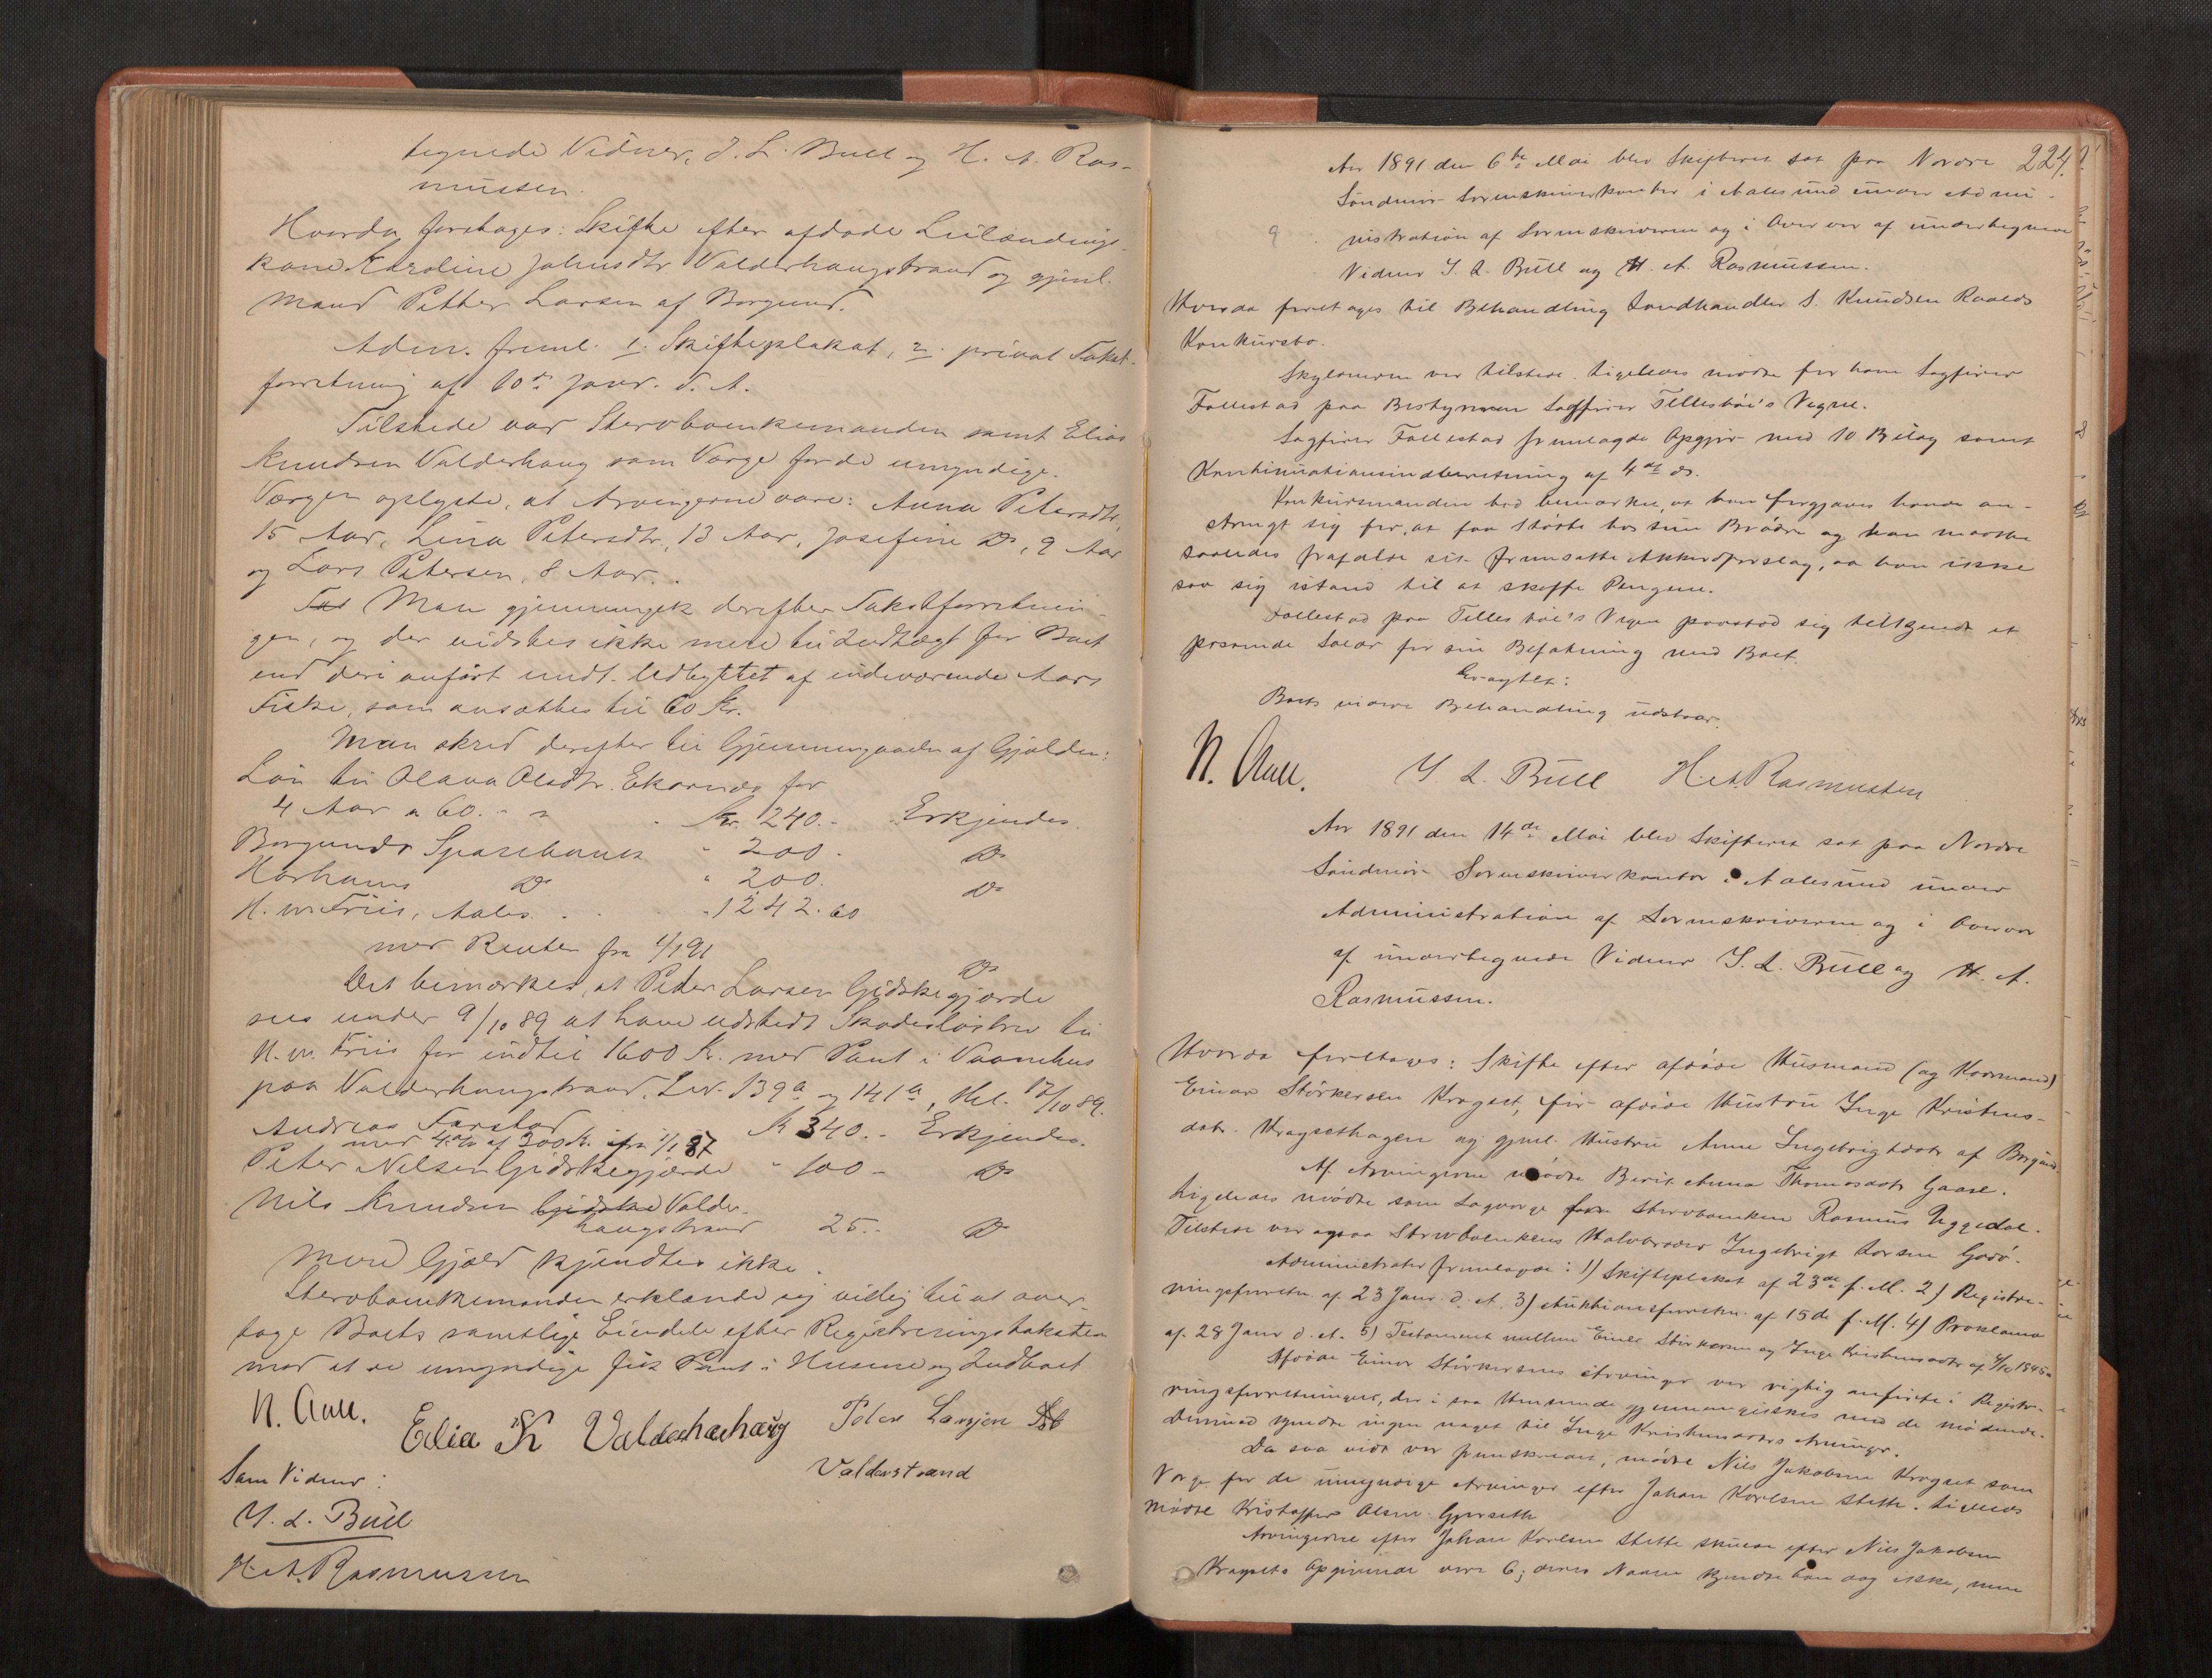 tegnede Vidner, J. L. Bull og H. A. Ras-
mussen.
Hvorda foretoges: Skifte efter afdøde Leilændings-
kone Karoline Johnsdtr. Valderhaugstrand og gjenl.
Mand Petter Larsen af Borgund.
Adm. freml. 1. Skifteplakat, 2. privat Takst-
forretning af 10de Janr. d. A.
Tilstede var Stervboenkemanden samt Elias
Knudsen Valderhaug som Værge for de umyndige.
Værgen oplyste, at Arvingerne vare: Anna Petersdtr,
15 Aar, Lina Petersdtr, 13 Aar, Josefine Do, 9 Aar
og Lars Petersen, 8 Aar.
Man gjennemgik derefter Taktsforretnin-
gen, og der vidstes ikke mere til Indtægt for Boet
end deri anført undt. Udbyttet af indeværende Aars
Fiske, som ansættes til 60 Kr.
Man skred derefter til Gjennemgaaelse af Gjælden:
Løn til Olava Olsdtr. Ekornæs for
4 Aar a 60. - Kr. 240. - Erkjendes.
Borgunds Sparebank " 200. Do
Harhams Do " 200. Do
H. M. Friis, Aales. . . . 1242. 60
med Renter fra 1/1 91 Do
Det bemærkes, at Peter Larsen Gidskegjærde
sees under 9/10 89 at have udstedt Skadesløsbrev til
H. M. Friis for indtil 1600 Kr. med Pant i Vaanehus
paa Valderhaugstrand, Lev. 139a og 141a, thl. 12/10 89.
Andreas Farstad Kr 340. - Erkjendes.
med 4% af 300 Kr. fra 1/1 87
Peter Nilsen Gidskegjærde " 100 - Do
Nils Knudsen Gidske Valder-
haugstrand 25. - Do
Mere Gjæld kjendtes ikke.
Stervboenkemanden erklærede sig villig til at over-
tage Boets samtlige Eiendele efter Registreringstaksten
mod at de umyndige fik Pant i Husene og Indboet
N. Aall. Elias K Valderhaug Peter Larsen
Valderstrand
Som Vidner:
J. L. Bull
H. A. Rasmussen
224.
Aar 1891 den 6te Mai blev Skifteret sat paa Nordre
Søndmør Sorenskriverkontor i Aalesund under Admi-
nistration af Sorenskriveren og i Overvær af undertegnede
Vidner J. L. Bull og H. A. Rasmussen.
Hvorda foretoges til Behandling Landhandler S. Knudsen Roalds
Konkursbo.
Skyldneren var tilstede. Ligeledes mødte for ham Sagfører
Follestad paa Bestyreren Sagfører Tillesbøe's Vegne.
Sagfører Follestad fremlagde Opgjør med 10 Bilag samt
Kontinuationsindberetning af 4de ds.
Konkursmanden bad bemærket, at han forgjæves havde an-
strengt sig for, at faa Støtte hos sine Brødre og han maatte
saaledes frafalde sit fremsatte Akkordforslag, da han ikke
saa sig istand til at skaffe Pengene.
Follestad paa Tillesbøe's Vegne paastod sig tilkjendt et
passende Salær for sin Befatning med Boet.
Eragtet:
Boets videre Behandling udstaar.
N. Aall. J. L. Bull H. A. Rasmussen
Aar 1891 den 14de Mai blev Skifteret sat paa Nordre
Søndmør Sorenskriverkontor i Aalesund under
Administration af Sorenskriveren og i Overvær
af undertegnede Vidner J. L. Bull og H. A.
Rasmussen.
Hvorda foretoges: Skifte efter afdøde Husmand (og Kaarmand)
Einar Størkersen Kragset, før afdøde Hustru Inge Kristens-
datr. Kragsethagen og gjenl. Hustru Anne Ingebrigtdatr af Borgund.
Af Arvingerne mødte Berit Anna Thomasdatr Gaase.
Ligeledes mødte som Lagværge for Stervboenken Rasmus Uggedal.
Tilstede var ogsaa Stervboenkens Halvbroder Ingebrigt Larsen Godø.
Administrator fremlagde: 1) Skifteplakat af 23de f. M. 2) Registre-
ringsforretn. af 23 Janr. d. A. 3) Auktionsforretn. af 15de f. M. 4) Proklama
af 28 Janr d. A. 5) Testament mellem Einar Størkersen og Inge Kristensdatr af 4/10 1845.
Afdøde Einar Størkersens Arvinger var rigtig anførte i Registre-
ringsforretningen, der i saa Henseende gjennemgikkes med de mødende.
Derimod kjendte ingen noget til Inge Kristensdatrs Arvinger.
Da saa vidt var fremskredet, mødte Nils Jakobsen Kragset som
Værge for de umyndige Arvinger efter Johan Karlsen Slette. Ligeledes
mødte Kristoffer Olsen Gjerseth
Arvingerne efter Johan Karlsen Slette skulde efter Nils Jakobsen
Kragsets Opgivende være 6; deres Navne kjendte han dog ikke, men